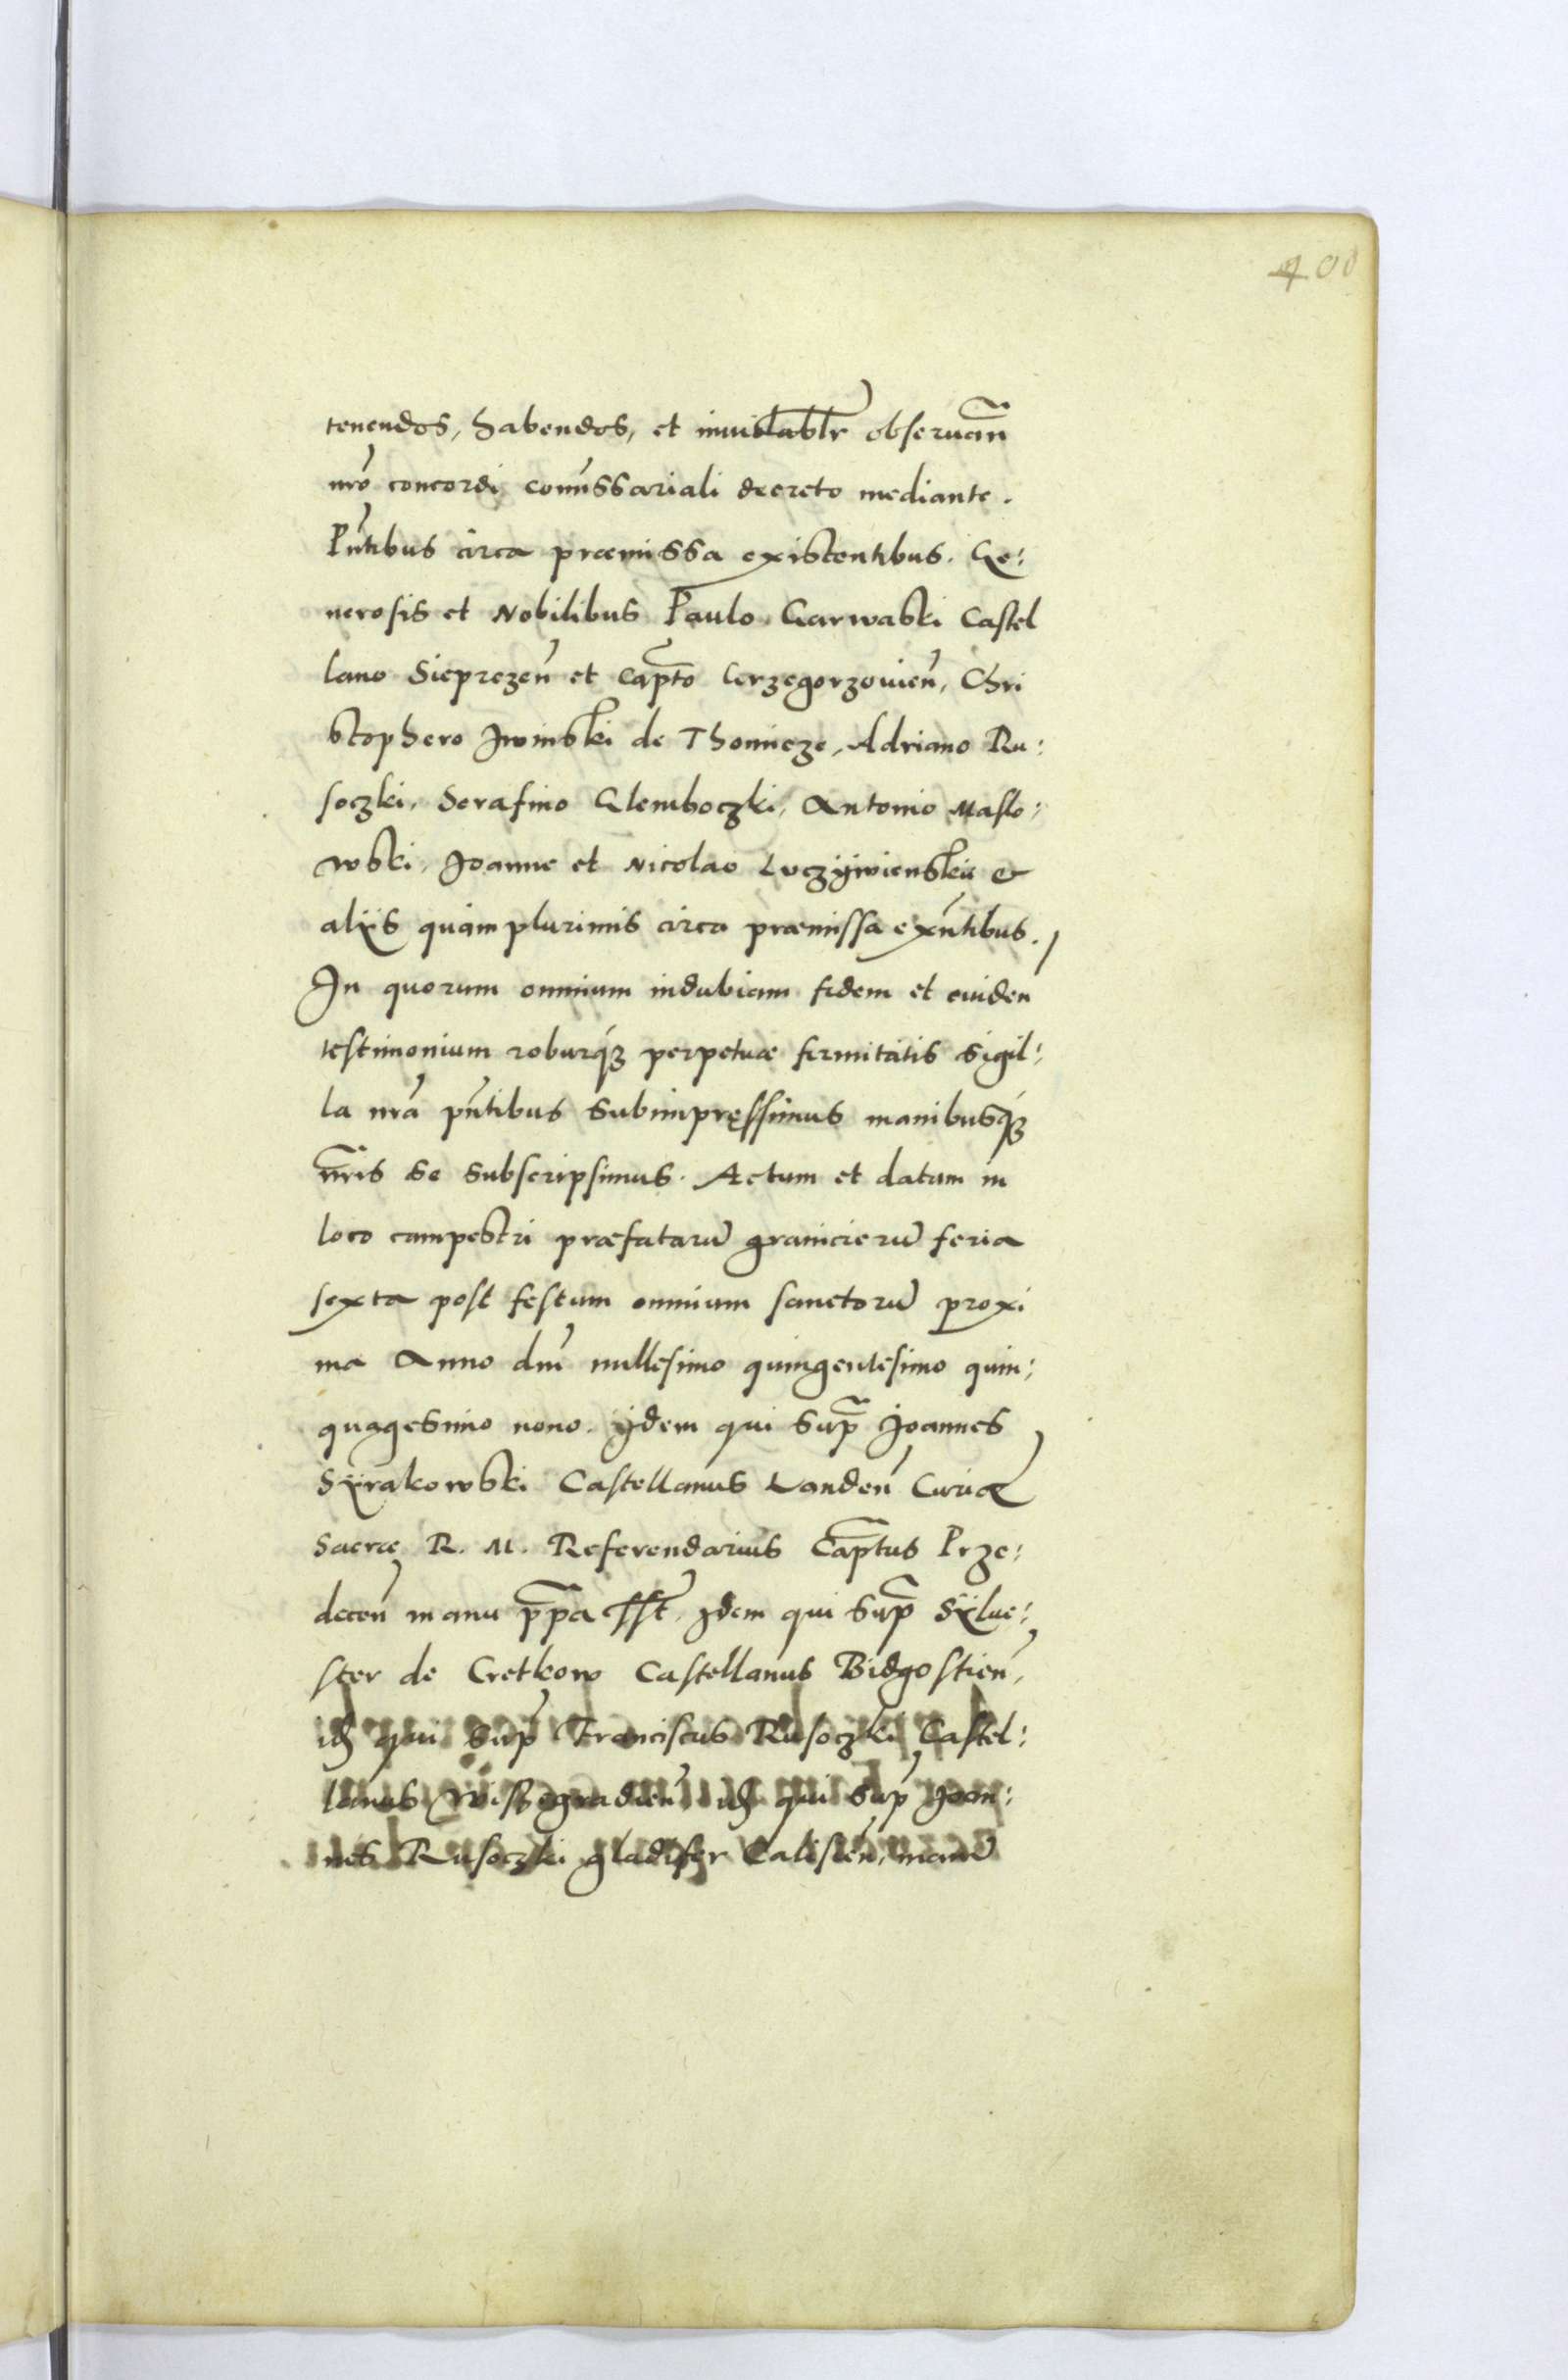 400
tenendos, habendos, et inuiolablr observan̄
nr̄o concordi com̄issariali decreto mediante.
Pn̄tibus circa præmissa existentibus. Ge:
nerosis et Nobilibus Paulo Garwaski Castel
lano Sieprczen̄ et Cap̄to Grzegorzouien̄, Chri
stophero Iwinski de Thomicze, Adriano Ru:
soczki, Serafino Glemboczki, Antonio Maslo:
wski, Joanne et Nicolao Luczÿwienskii &
alÿs quàm plurimis circa præmissa exn̄tibus.
In quorum omnium indubiam fidem et euiden
testimonium roburq́ꝫ perpetuæ firmitatis sigil:
la nr̄a pn̄tibus subimpręssimus manibusq́ꝫ
nr̄is se subscripsimus. Actum et datum in
loco campestri præfatarū granicierū feria
sexta post festum omnium sanctorū proxi
ma Anno dn̄i millesimo quingentesimo quin:
quagesimo nono. ÿdem qui sup̄ Joannes
Sÿrakowski Castellanus Landen̄ Curiæ
Sacræ R. M. Referendarius Cap̄tus Prze:
decen̄ manu pp̄a sst̄. Idem qui sup̄ Sÿlue:
ster de Cretkow Castellanus Bidgostien̄,
idꝫ qui sup̄ Franciscus Rusoczki Castel:
lanus Wissegradien̄ idꝫ qui sup̄ Joan:
nes Rusoczki gladifer Calisien̄, manū